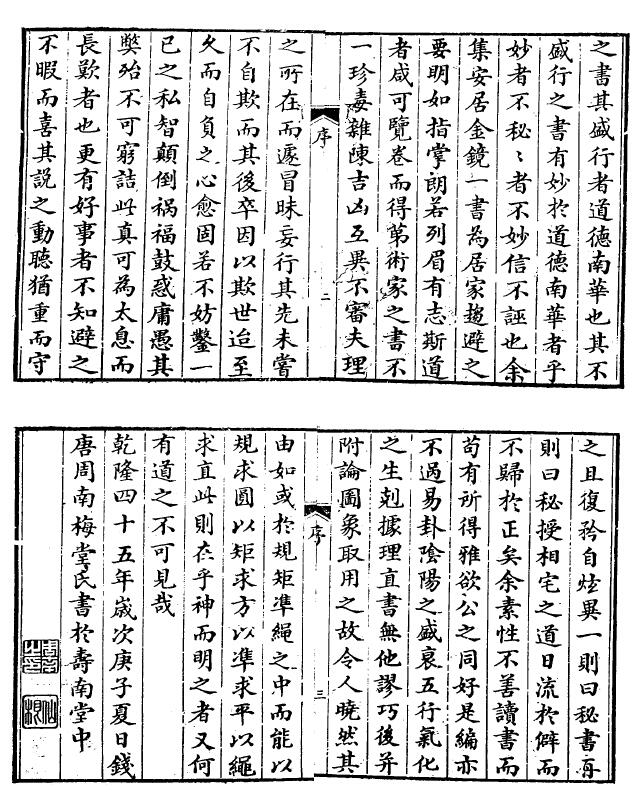 之書其盛行者道德南華也其不
盛行之書有妙於道德南華者乎
妙者不秘〻者不妙信不誣也余
集安居金鏡一書為居家趨避之
要明如指掌朗若列眉有志斯道
者咸可覽卷而得第術家之書不
一珍毒雜陳吉凶互異不審夫理
序
二
之所在而遽冒昧妄行其先未嘗
不自欺而其後卒因以欺世迨至
久而自負之心愈固若不妨鑿一
已之私智顛倒禍福鼓惑庸愚其
獘殆不可窮詰此真可為太息而
長歎者也更有好事者不知避之
不暇而喜其說之動聽猶重而守
之且復矜自炫異一則曰秘書再
則曰秘授相宅之道日流於僻而
不歸於正矣余素性不善讀書而
苟有所得雅欲公之同好是編亦
不過易卦陰陽之盛衰五行氣化
之生剋據理直書無他謬巧後并
附論圖象取用之故令人曉然其
序
三
由如或於規矩凖繩之中而能以
規求圓以矩求方以凖求平以繩
求直此則在乎神而明之者又何
有道之不可見哉
乾隆四十五年歲次庚子夏日錢
唐周南梅堂氏書於壽南堂中